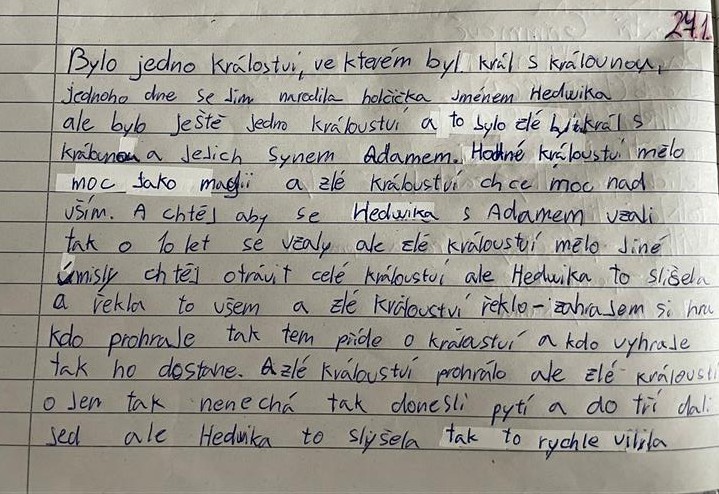 24.1.
Bylo jedno králoství, ve kterém byl král s královnou,
jednoho dne se jim narodila holčička jménem Hedwika
ale bylo ještě jedno králouství a to bylo zlé král s
a jejich synem Adamem. Hodné králouství mělo
moc jako magii a zlé králouství chce moc nad
vším. A chtěj aby se Hedwika s Adamem vzali
tak o 10 let se vzaly ale zlé králouství mělo jiné
úmisly chtěj otrávit celé králouství ale Hedwika to slišela
a řekla to všem a zlé králouství řeklo - zahrajem si hru
kdo prohraje tak tem příde o králouství a kdo vyhraje
tak ho dostane. A zlé králouství prohrálo ale zlé králoustí
o jen tak nenechá tak donesli pytí a do tří dali
jed ale Hedwika to slyšela tak to rychle vilila